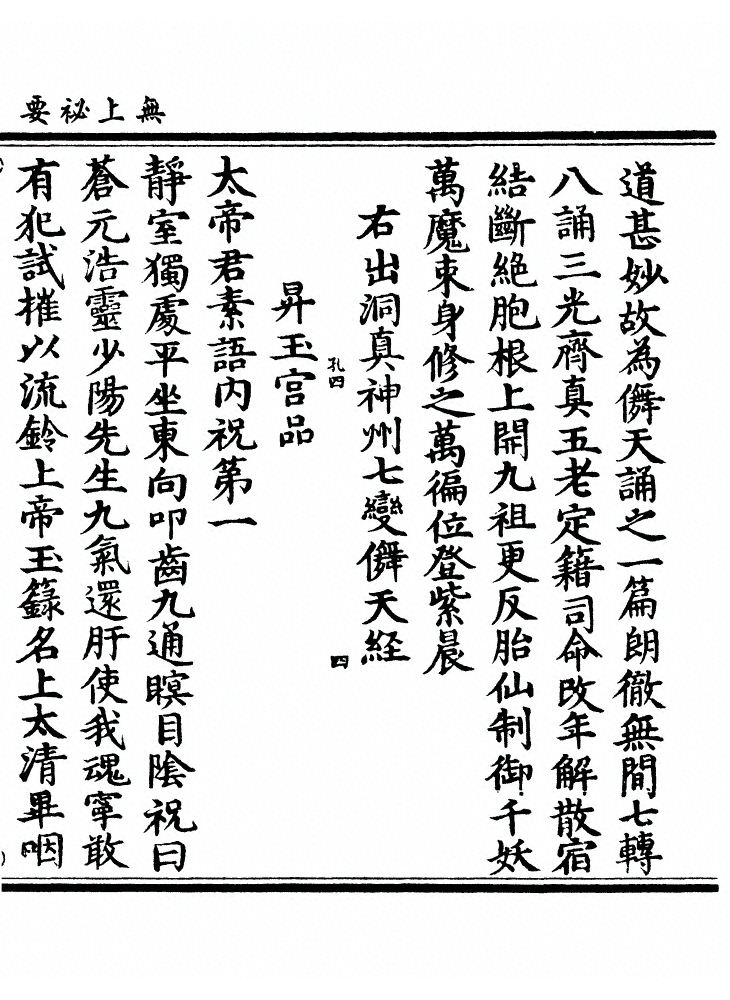 無上祕要
道甚妙故為儛天誦之一篇朗徹無間七轉
八誦三光齊真五老定籍司命改年解散宿
結斷絶胞根上開九祖更反胎仙制御千妖
萬魔束身修之萬徧位登紫晨
右出洞真神州七變儛天経
孔四
四
昇玉宫品
太帝君素語内祝第一
靜室獨處平坐東向叩齒九通瞑目陰祝曰
蒼元浩靈少陽先生九氣還肝使我魂寧敢
有犯試摧以流鈴上帝玉籙名上太清畢咽